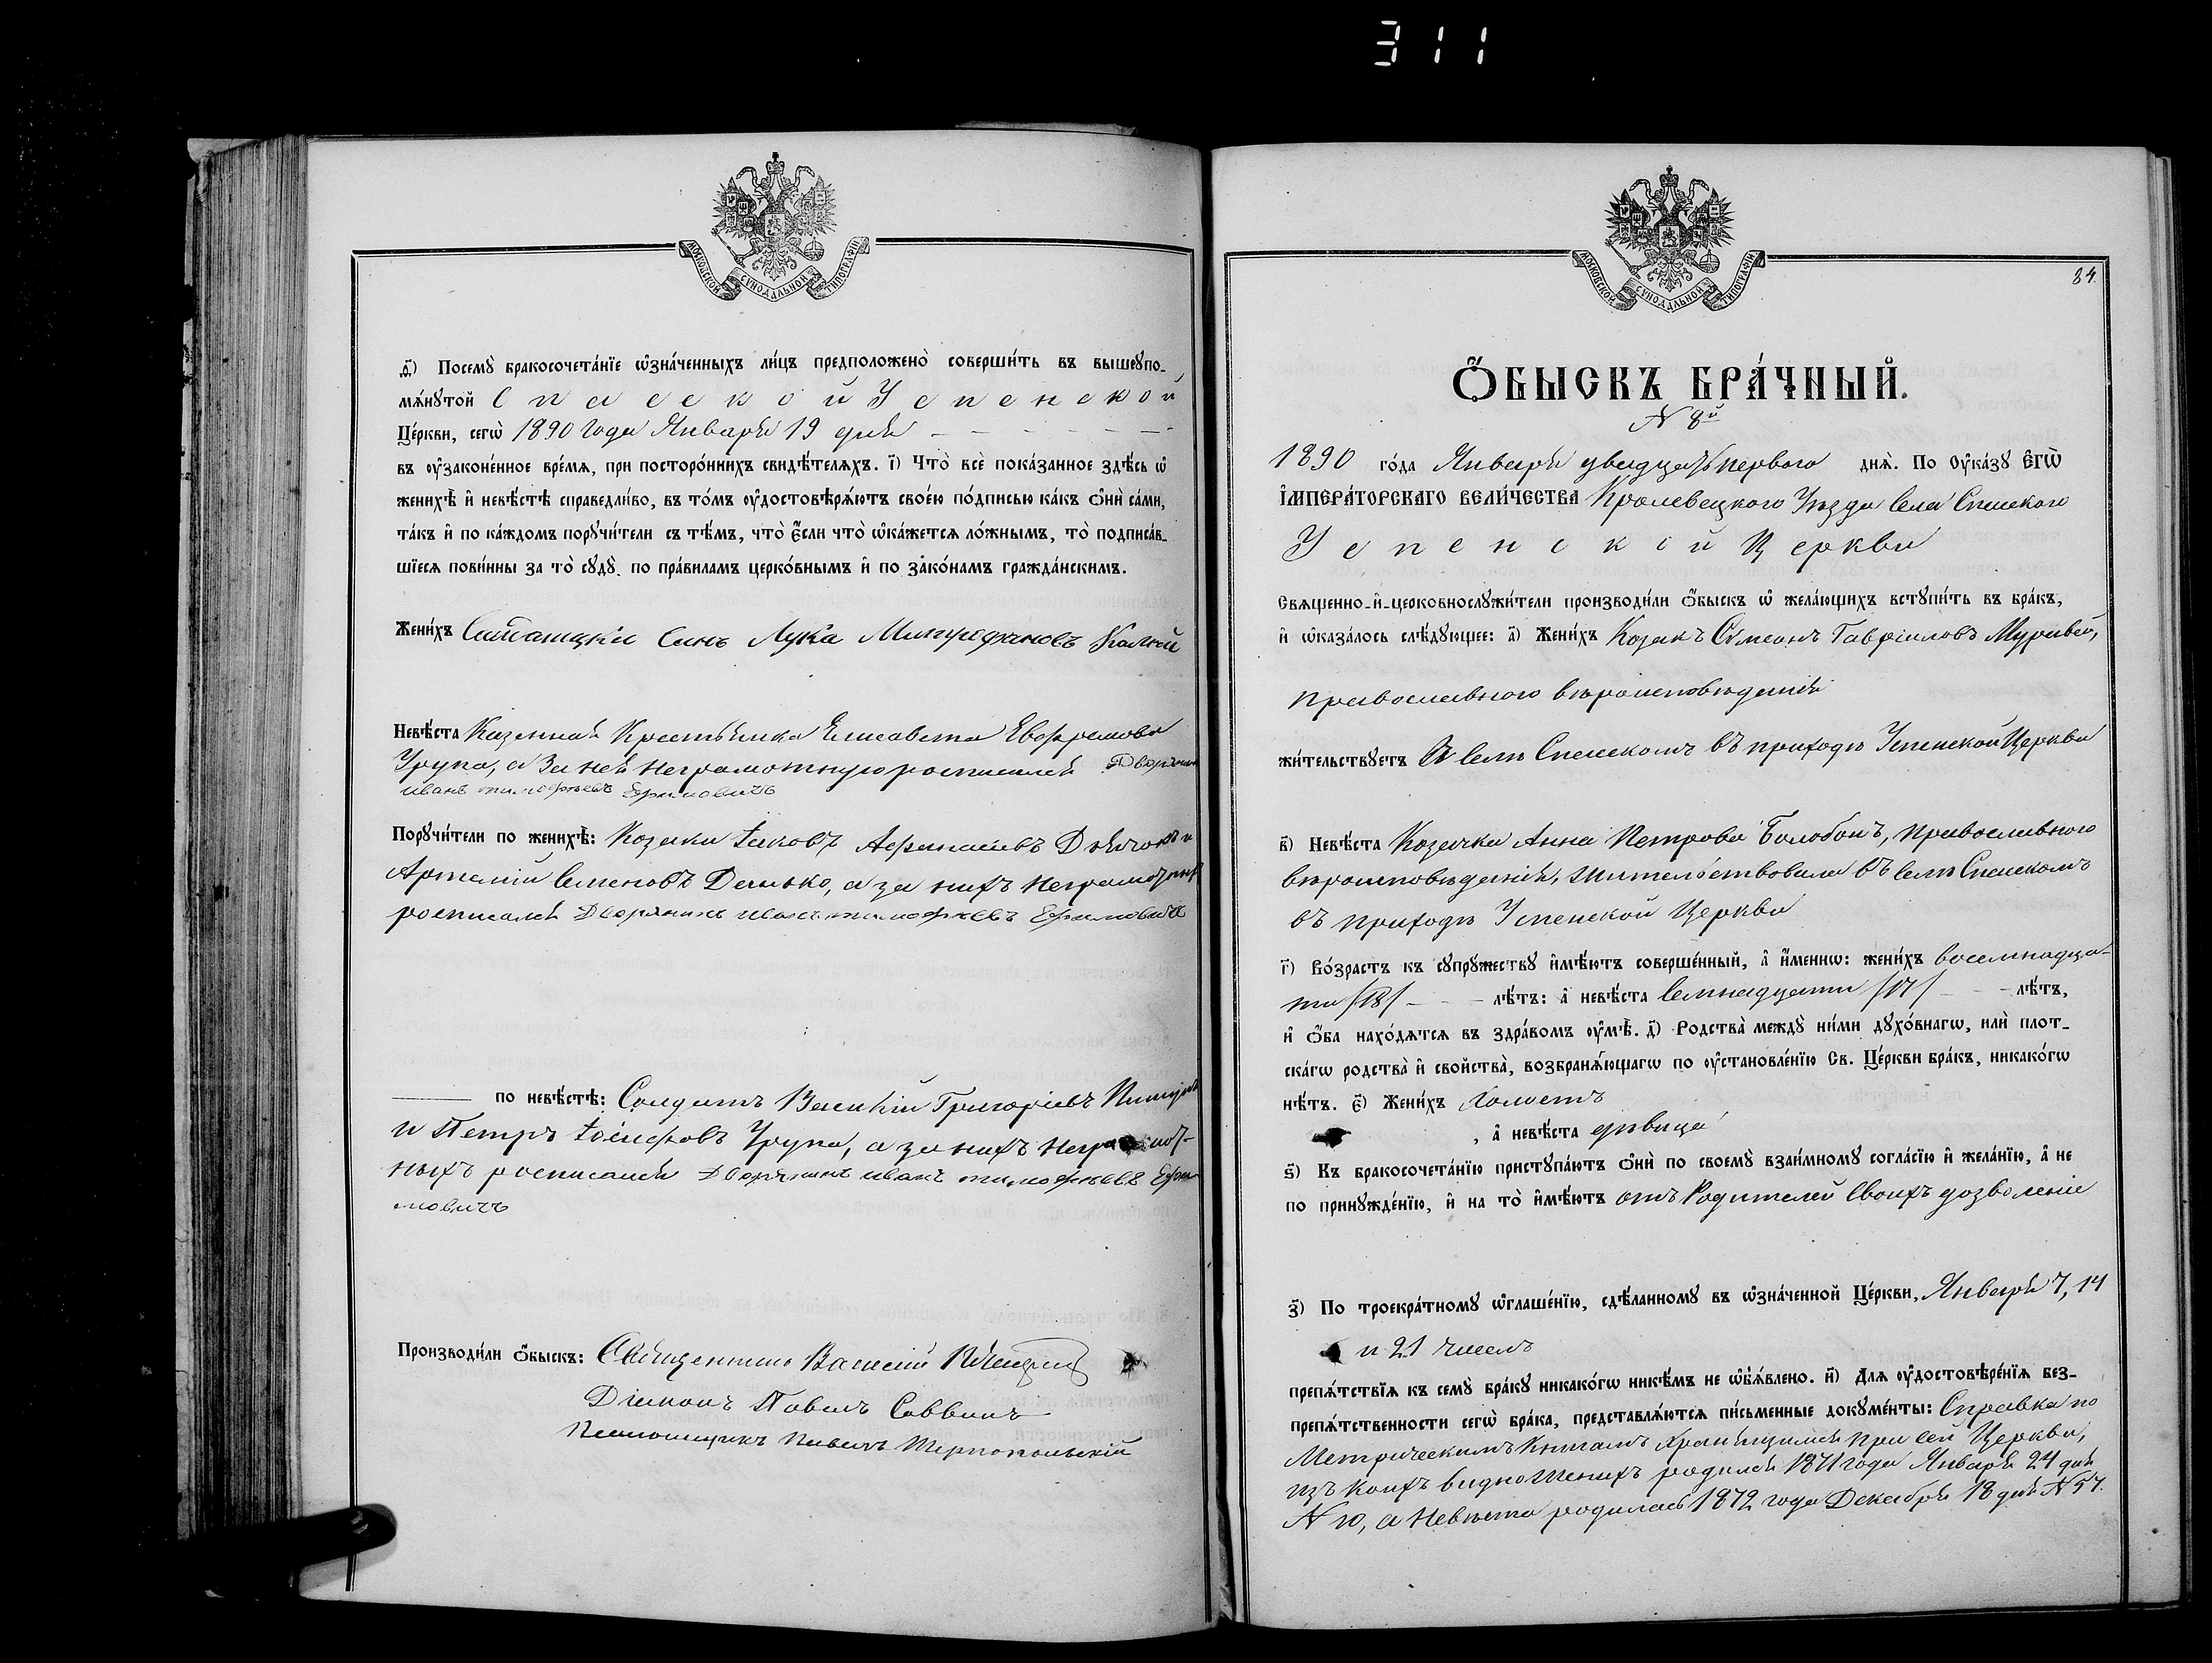 311
МОСКОВСКОЙ СѴНОДАЛЬНОЙ ТИПОГРАФІИ
д҃і) Посемꙋ̀ бракосочета́нїе ѡ҆зна́ченныхъ ли́цъ предположено̀ соверши́ть въ вышеꙋпо-
мѧ́нꙋтой Спасской Успенской
Це́ркви, сегѡ̀ 1890 года Января 19 дня
въ ᲂу҆законе́нное вре́мѧ, при посторо́ннихъ свидѣ́телѧхъ. і҃) Что̀ всѐ пока́занное здѣ́сь ѡ҆
женихѣ̀ и҆ невѣ́стѣ справедли́во, въ то́мъ ᲂу҆достовѣрѧ́ютъ свое́ю по́дписью ка́къ ѻ҆нѝ са́ми,
та́къ и҆ по ка́ждомъ порꙋчи́тели съ тѣ́мъ, что̀ є҆́сли что̀ ѡ҆ка́жетсѧ ло́жнымъ, то̀ подписа́в-
шїесѧ пови́нны за то̀ сꙋдꙋ̀ по пра́виламъ церко́внымъ и҆ по зако́намъ гражда́нскимъ.
Жени́хъ Синъ Лука Калюй
Невѣ́ста Казенная Крестьянка Елисавета Евфремова
Урупа, а За ней неграмотную росписался Дворянин
иванъ тимофѣевъ Ефимовичъ
Порꙋчи́тели по женихѣ̀: Козаки Іаковъ Афанасіевъ Дьячокъ и
Артемій Семеновъ Демько, а за нихъ неграмотныхъ
росписался Дворянинъ иванъ тимофѣевъ Ефимовичъ
по невѣ́стѣ: Солдатъ Василій Григоріевъ
и Петръ Іосифовъ Урупа, а за нихъ неграмот-
ныхъ росписался Дворянинъ иванъ тимофѣевъ Ефи-
мовичъ
Производи́ли ѻ҆́быскъ: Священникъ Василій
Діаконъ Павелъ Саввинъ
Псаломщикъ Павелъ Тернопольскій
МОСКОВСКОЙ СѴНОДАЛЬНОЙ ТИПОГРАФІИ
84.
Ѻ҆́БЫСКЪ БРА́ЧНЫЙ.
N 8й
1890 го́да Января двадцать перваго днѧ̀. По ᲂу҆ка́зꙋ є҆гѡ̀
и҆мпера́торскагѡ вели́чества Кролевецкого Уѣзда Села Спаского
Успенской Церкви
Свѧще́нно-и҆-церковнослꙋжи́тели производи́ли ѻ҆́быскъ ѡ҆ жела́ющихъ встꙋпи́ть въ бра́къ,
и҆ ѡ҆каза́лось слѣ́дꙋющее: а҃) Жени́хъ Козакъ Симеонъ Гавріиловъ Муравей,
православного вѣроисповѣданія
жи́тельствꙋетъ В селѣ Спаскомъ въ приходѣ Успенской Церкви
в҃) Невѣ́ста Козачка Анна ПетроваБолобонъ, православного
вѣроисповѣданія, жительствовала въ селѣ Спаскомъ
въ приходѣ Успенской Церкви
г҃) Во́зрастъ къ сꙋпрꙋ́жествꙋ и҆мѣ́ютъ соверше́нный, а҆ и҆́меннѡ: жени́хъ восемнадца-
ти /18/ лѣ́тъ: а҆ невѣ́ста Семнадцати /17/ лѣ́тъ,
и҆ ѻ҆́ба нахо́дѧтсѧ въ здра́вомъ ᲂу҆мѣ̀. д҃) Родства̀ междꙋ̀ ни́ми дꙋхо́внагѡ, илѝ плот-
ска́гѡ родства̀ и҆ свойства̀, возбранѧ́ющагѡ по ᲂу҆становле́нїю Св. Це́ркви бра́къ, никако́гѡ
нѣ́тъ. є҃) Жени́хъ Холостъ
, а҆ невѣ́ста дѣвица
ѕ҃) Къ бракосочета́нїю пристꙋпа́ютъ ѻ҆нѝ по своемꙋ̀ взаи́мномꙋ согла́сїю и҆ жела́нїю, а҆ не
по принꙋжде́нїю, и҆ на то̀ и҆мѣ́ютъ отъ Родителей своихъ дозволеніе
з҃) По троекра́тномꙋ ѡ҆глаше́нїю, сдѣ́ланномꙋ въ ѡ҆зна́ченной Це́ркви, Января 7, 14
и 21 чиселъ
препѧ́тствїѧ къ семꙋ̀ бра́кꙋ никако́гѡ никѣ́мъ не ѡ҆бъѧ́влено. и҃) Длѧ ᲂу҆достовѣре́нїѧ без-
препѧ́тственности сегѡ̀ бра́ка, представлѧ́ютсѧ пи́сьменные докꙋме́нты: Справка по
Метрическимъ Книгамъ хранящимся при сей Церкви,
изъ коихъ видно Женихъ родился 1871 года Января 24 дня
N 10, а Невѣста родилась 1872 года Декабря 18 дня N 57.